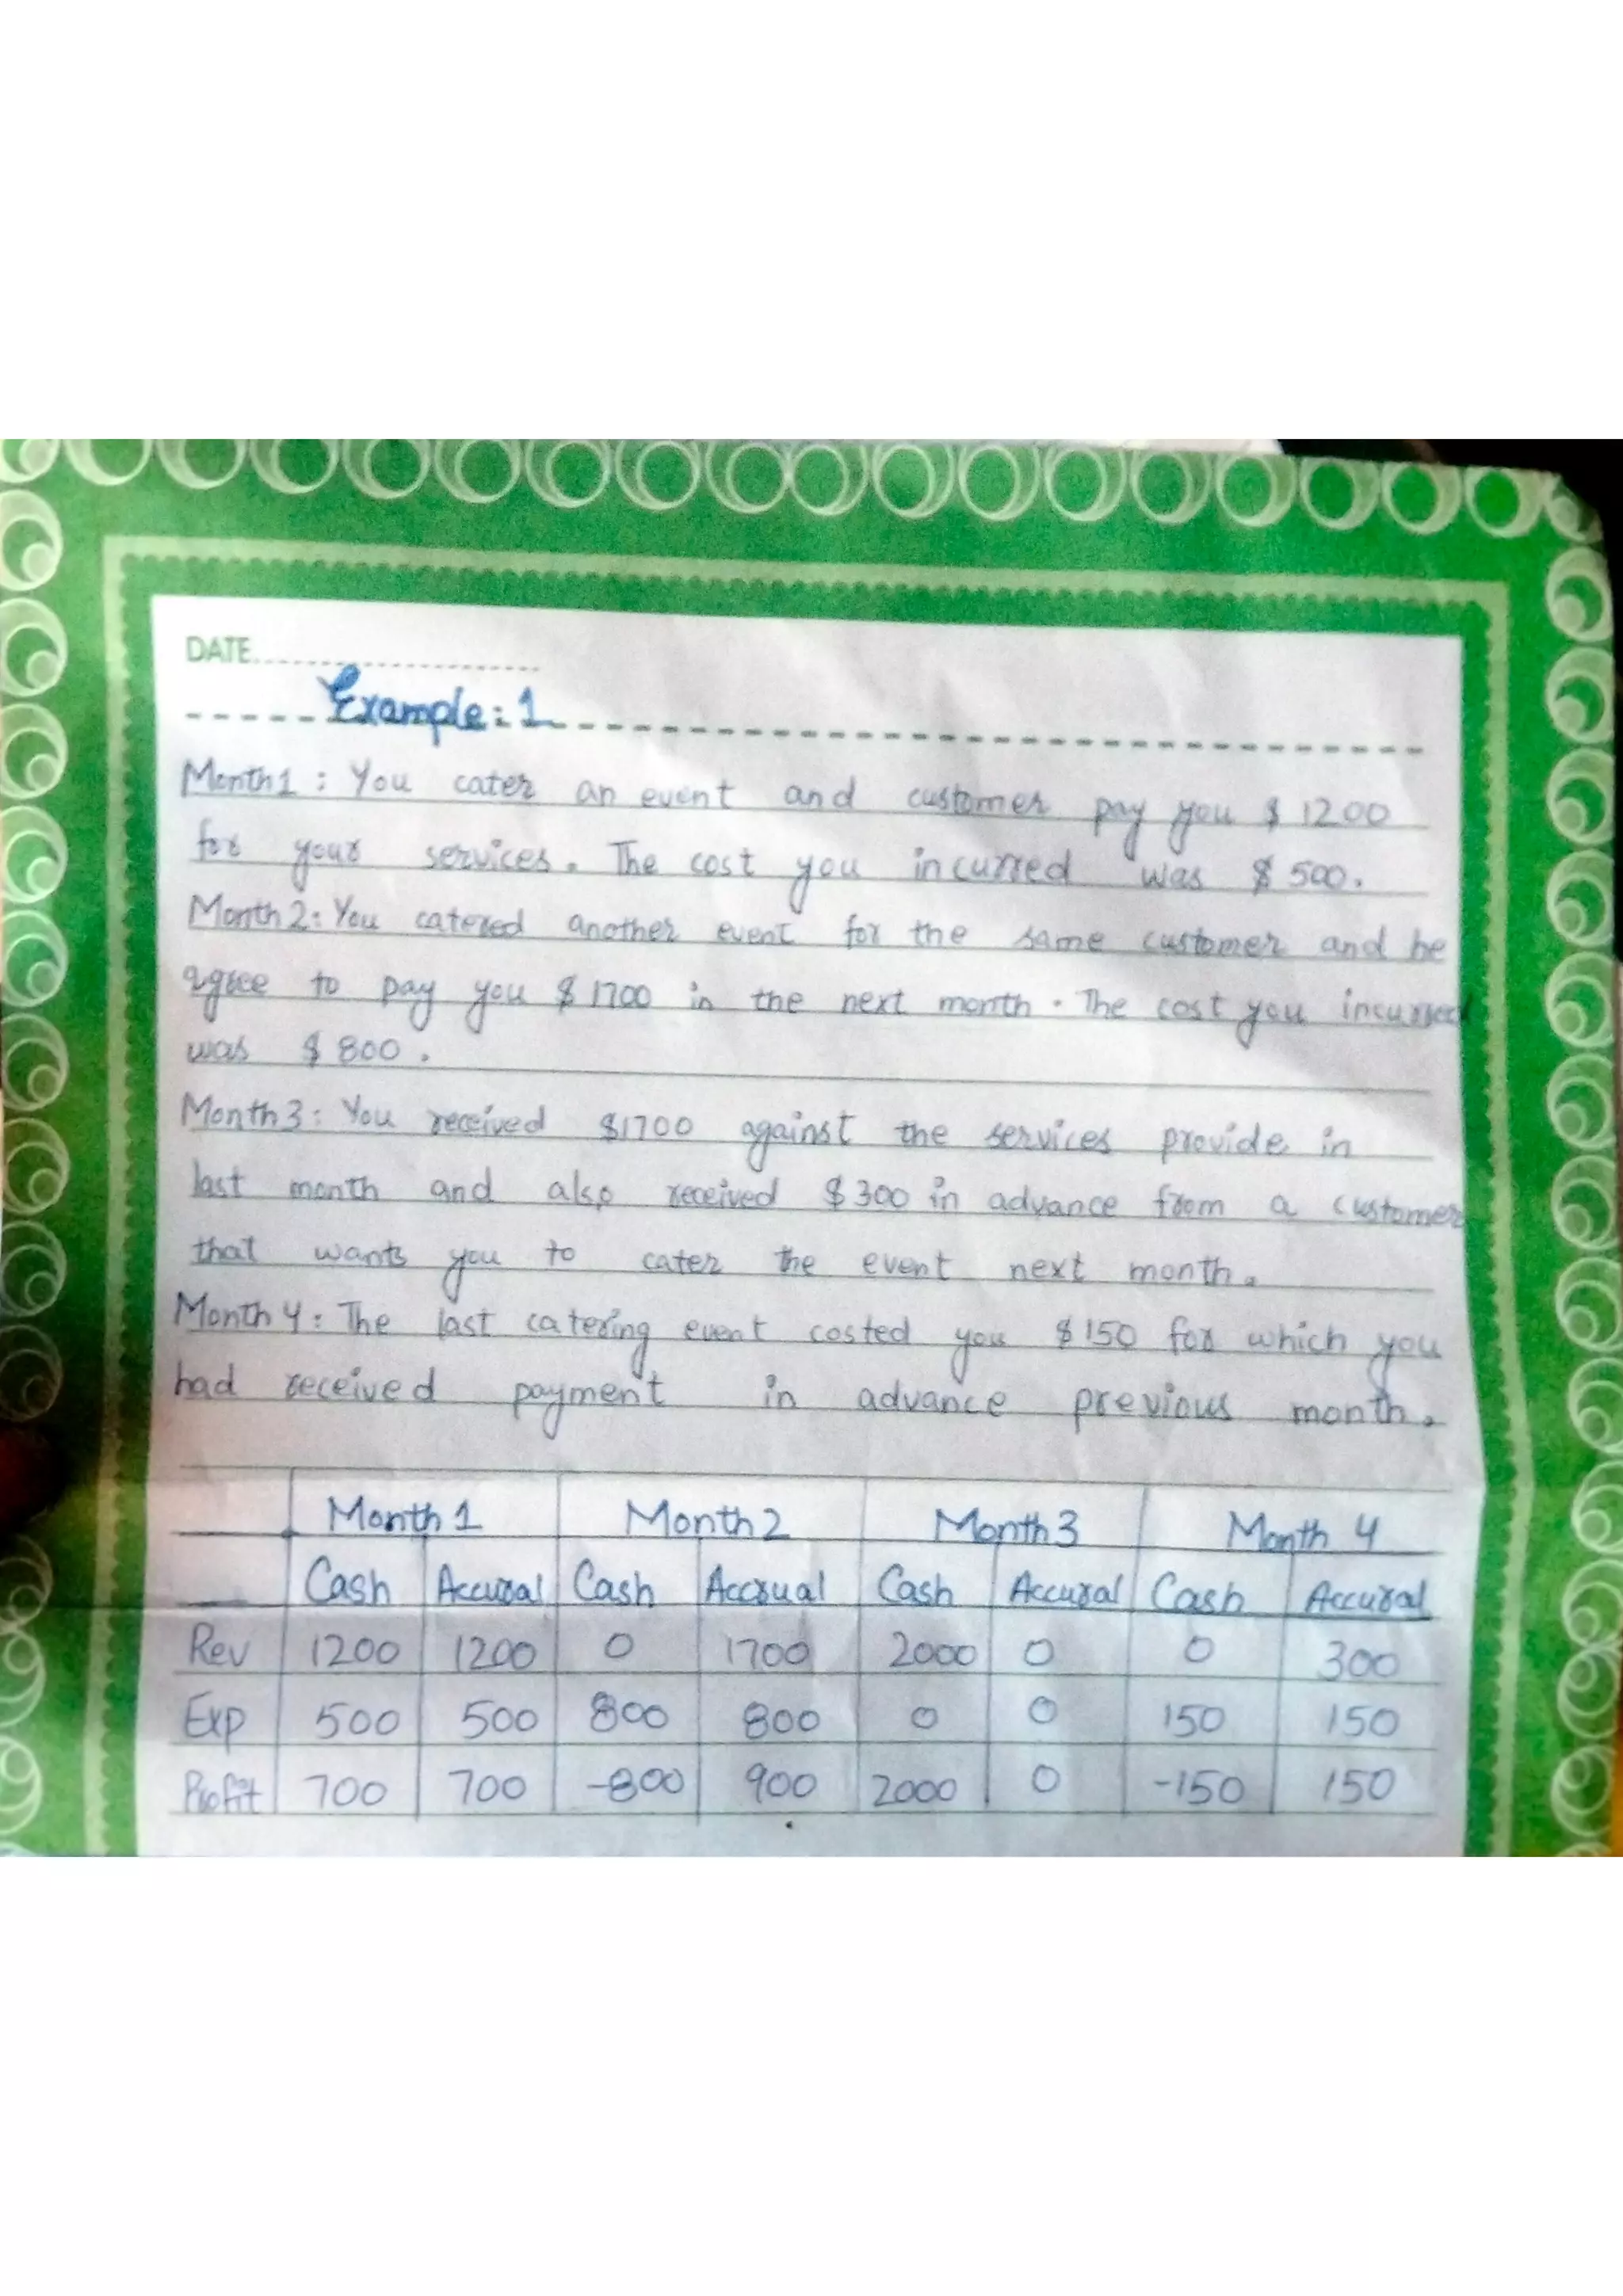 DATE
Example: 1
Month 1 : You cater an event and customer pay you $ 1200
for your services. The cost you incurred was $ 500.
Month 2: You catered another event for the same customer and he
agree to pay you $ 1700 in the next month. The cost you incurred
was $ 800.
Month 3: You received $1700 against the services provide in
last month and also received $ 300 in advance from a customer
that wants you to cater the event next month.
Month 4: The last catering event costed you $ 150 for which you
had received payment in advance previous month.
Month 1 Month 2 Month 3 Month 4
Cash Accural Cash Accrual Cash Accural Cash Accural
Rev 1200 1200 0 1700 2000 0 0 300
Exp 500 500 800 800 0 0 150 150
Profit 700 700 -800 900 2000 0 -150 150